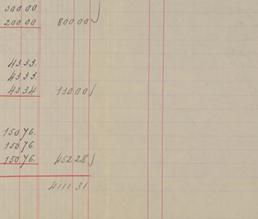 300.00
200.00 800.00
43.33
43.33
43.34 130.00
150.76
150.76
150.76 452.28
4111.31